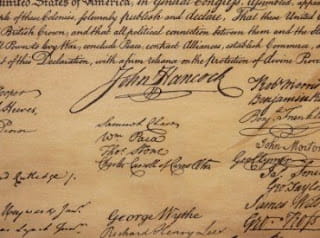 United States of America, in General Congress, Assembled, appea
of these Colonies, solemnly publish and declare, That these United C
British Crown, and that all political connection between them and the S
Power to levy War, conclude Peace, contract Alliances, establish Commerce, a
of this Declaration, with a firm reliance on the protection of divine Provi
John Hancock
Robt Morris
Benjamin R
Benj Franklin
Hewes,
Samuel Chase
Wm Paca
Thos Stone
Charles Carroll of Carrollton
John Morton
Geo Clymer
Jas. Smi
Geo. Taylor
James Wils
Geo. Ross
Rutledge
Heyward Junr.
Lynch Junr.
George Wythe
Richard Henry Lee